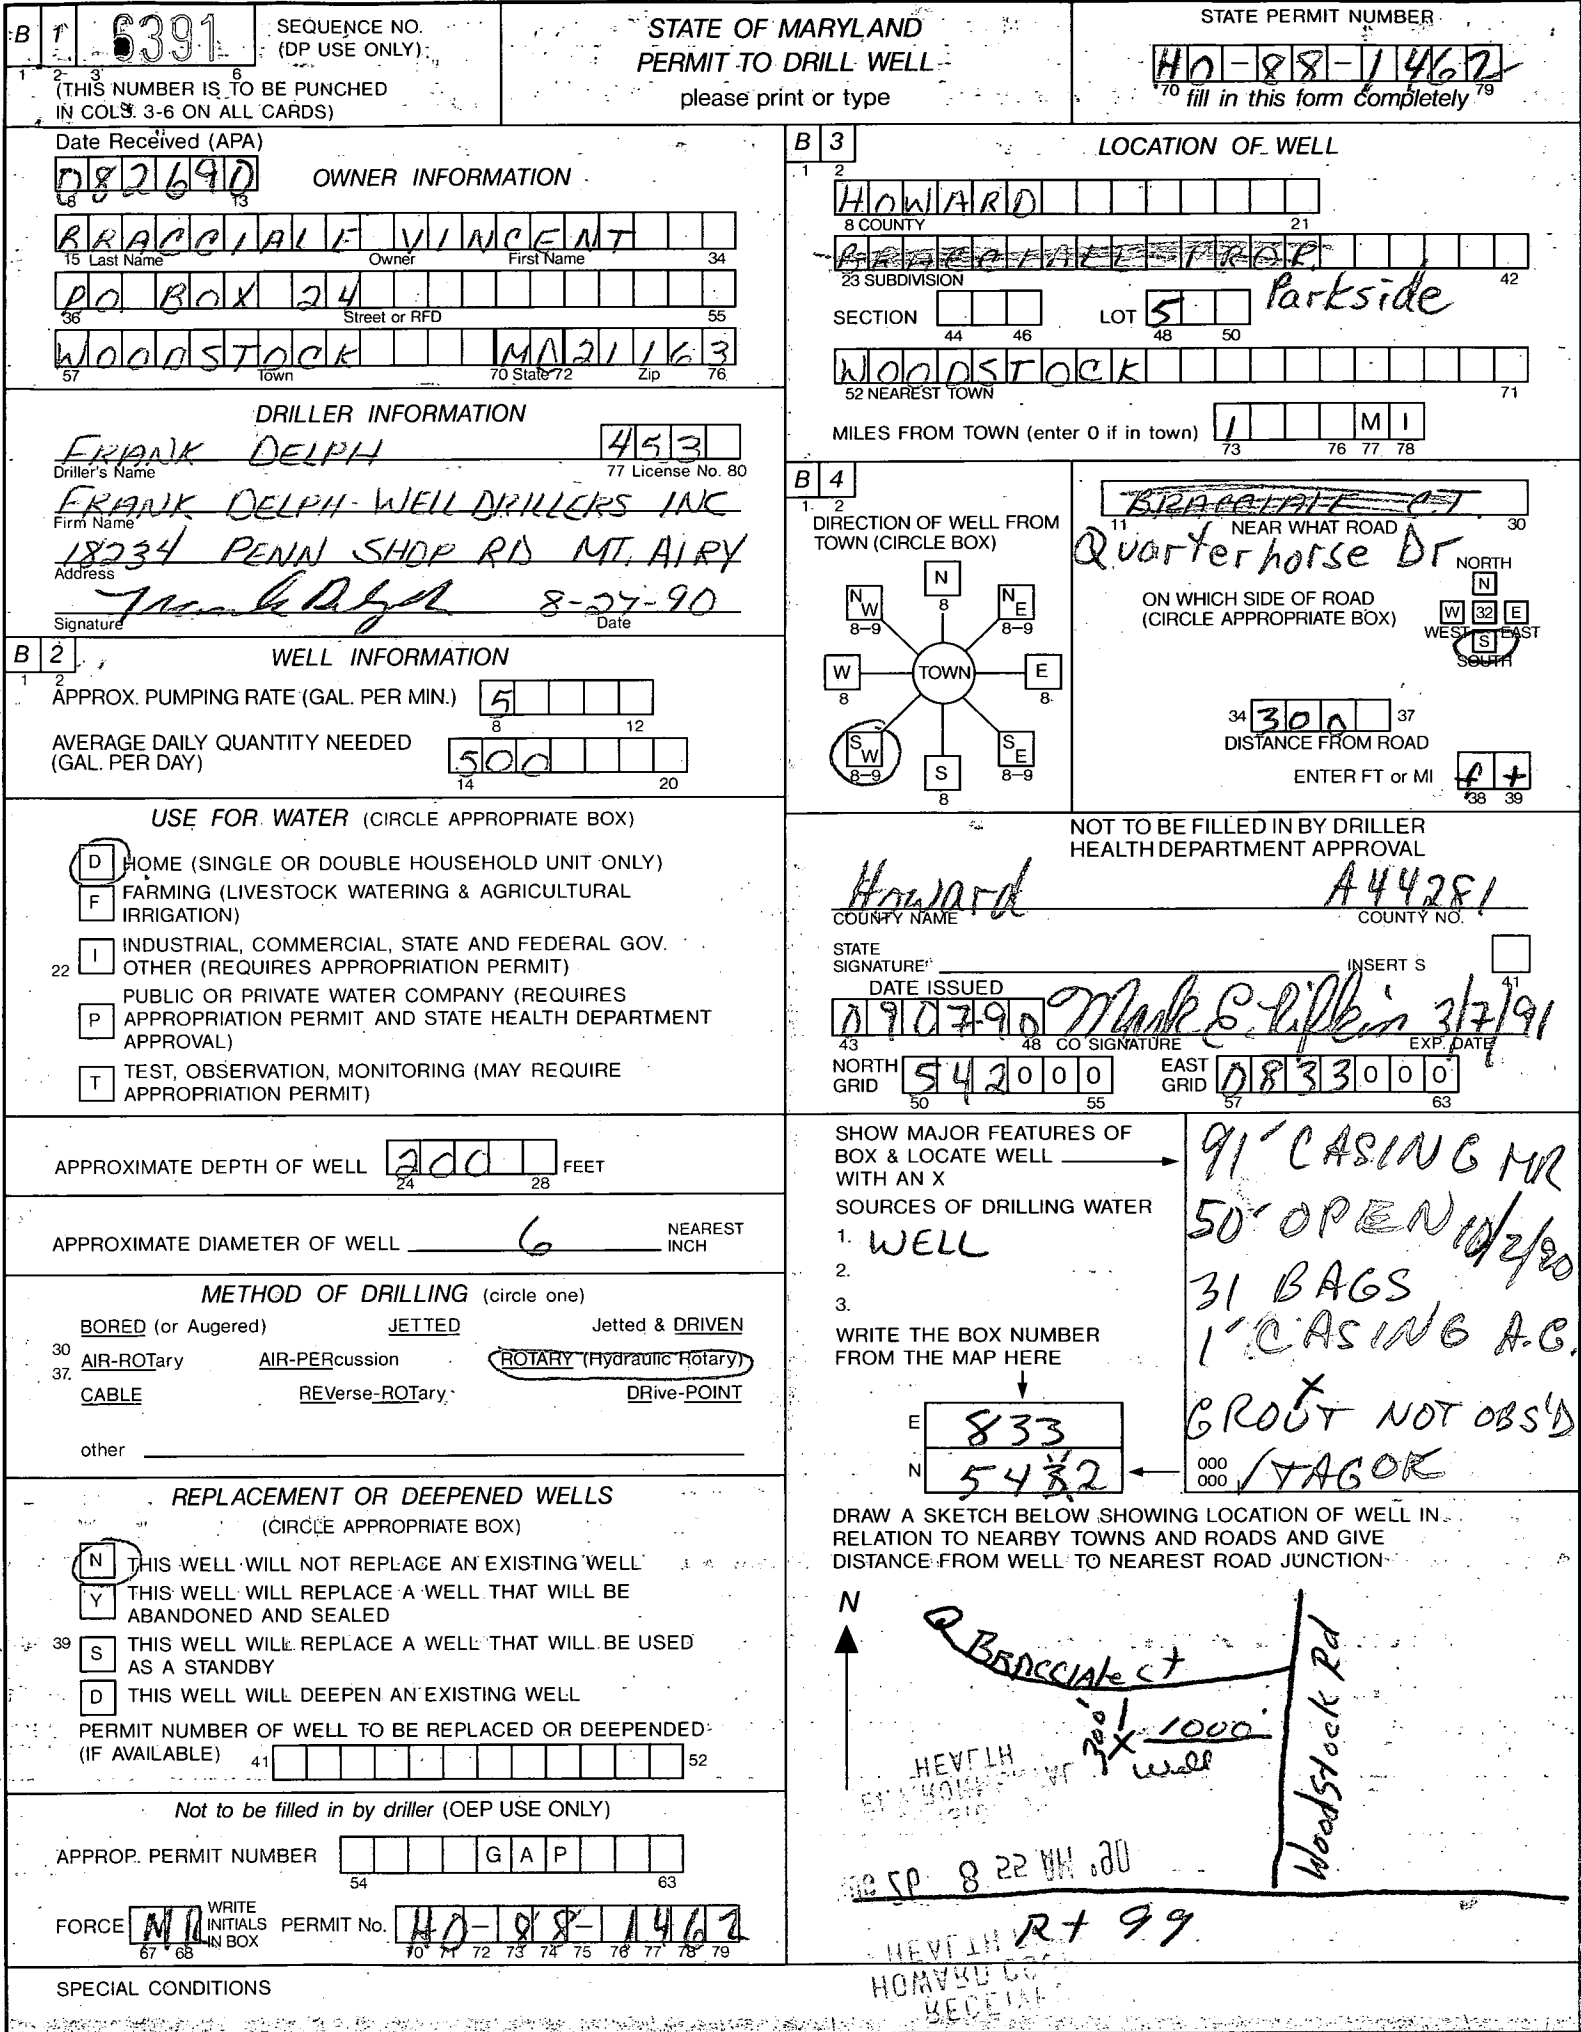 B 1 6391 SEQUENCE NO. (DP USE ONLY)
1 2 3 6
(THIS NUMBER IS TO BE PUNCHED
IN COLS. 3-6 ON ALL CARDS)
STATE OF MARYLAND
PERMIT TO DRILL WELL
please print or type
STATE PERMIT NUMBER
HO-88-1462
70 fill in this form completely 79
Date Received (APA)
082690
8 13
OWNER INFORMATION
BRACCIALE VINCENT
15 Last Name Owner First Name 34
PO BOX 24
36 Street or RFD 55
WOODSTOCK MD 21163
57 Town 70 State 72 Zip 76
DRILLER INFORMATION
FRANK DELPH 453
Driller's Name 77 License No. 80
FRANK DELPH WELL DRILLERS INC
Firm Name
18234 PENN SHOP RD MT. AIRY
Address
8-27-90
Signature Date
B 2 WELL INFORMATION
1 2
APPROX. PUMPING RATE (GAL. PER MIN.) 5
8 12
AVERAGE DAILY QUANTITY NEEDED
(GAL. PER DAY) 500
14 20
USE FOR WATER (CIRCLE APPROPRIATE BOX)
D HOME (SINGLE OR DOUBLE HOUSEHOLD UNIT ONLY)
F FARMING (LIVESTOCK WATERING & AGRICULTURAL
IRRIGATION)
22 I INDUSTRIAL, COMMERCIAL, STATE AND FEDERAL GOV.
OTHER (REQUIRES APPROPRIATION PERMIT)
P PUBLIC OR PRIVATE WATER COMPANY (REQUIRES
APPROPRIATION PERMIT AND STATE HEALTH DEPARTMENT
APPROVAL)
T TEST, OBSERVATION, MONITORING (MAY REQUIRE
APPROPRIATION PERMIT)
APPROXIMATE DEPTH OF WELL 200 FEET
24 28
APPROXIMATE DIAMETER OF WELL 6 NEAREST INCH
METHOD OF DRILLING (circle one)
BORED (or Augered) JETTED Jetted & DRIVEN
30
37 AIR-ROTary AIR-PERcussion ROTARY (Hydraulic Rotary)
CABLE REVerse-ROTary DRive-POINT
other
REPLACEMENT OR DEEPENED WELLS
(CIRCLE APPROPRIATE BOX)
N THIS WELL WILL NOT REPLACE AN EXISTING WELL
Y THIS WELL WILL REPLACE A WELL THAT WILL BE
ABANDONED AND SEALED
39 S THIS WELL WILL REPLACE A WELL THAT WILL BE USED
AS A STANDBY
D THIS WELL WILL DEEPEN AN EXISTING WELL
PERMIT NUMBER OF WELL TO BE REPLACED OR DEEPENED
(IF AVAILABLE) 41 52
Not to be filled in by driller (OEP USE ONLY)
APPROP. PERMIT NUMBER G A P
54 63
FORCE MR WRITE INITIALS IN BOX PERMIT No. HO-88-1462
67 68 70 71 72 73 74 75 76 77 78 79
SPECIAL CONDITIONS
B 3 LOCATION OF WELL
1 2
HOWARD
8 COUNTY 21
BRACCIALE PROP.
23 SUBDIVISION 42
Parkside
SECTION LOT 5
44 46 48 50
WOODSTOCK
52 NEAREST TOWN 71
MILES FROM TOWN (enter 0 if in town) 1 M I
73 76 77 78
B 4
1 2
DIRECTION OF WELL FROM
TOWN (CIRCLE BOX)
N
8
NW NE
8-9 8-9
W TOWN E
8 8
SW SE
8-9 8-9
S
8
BRACCIALE CT.
11 NEAR WHAT ROAD 30
Quarterhorse Dr
ON WHICH SIDE OF ROAD
(CIRCLE APPROPRIATE BOX)
NORTH
N
W 32 E
WEST S EAST
SOUTH
34 300 37
DISTANCE FROM ROAD
ENTER FT or MI ft
38 39
NOT TO BE FILLED IN BY DRILLER
HEALTH DEPARTMENT APPROVAL
Howard A44281
COUNTY NAME COUNTY NO.
STATE
SIGNATURE INSERT S
41
DATE ISSUED
090790 Mark E. Rifkin 3/7/91
43 48 CO SIGNATURE EXP. DATE
NORTH GRID 542000 EAST GRID 0833000
50 55 57 63
SHOW MAJOR FEATURES OF
BOX & LOCATE WELL
WITH AN X
SOURCES OF DRILLING WATER
1. WELL
2.
3.
WRITE THE BOX NUMBER
FROM THE MAP HERE
E 833
N 542
91' CASING MR
50' OPEN 10/2/90
31 BAGS
1' CASING A.G.
X
GROUT NOT OBS'D
000
000 √TAG OK
DRAW A SKETCH BELOW SHOWING LOCATION OF WELL IN
RELATION TO NEARBY TOWNS AND ROADS AND GIVE
DISTANCE FROM WELL TO NEAREST ROAD JUNCTION
N
BRACCIALE Ct
300' X 1000'
Well
Woodstock Rd
Rt 99
HEALTH
8 55 AM '90
HEALTH
HOWARD CO